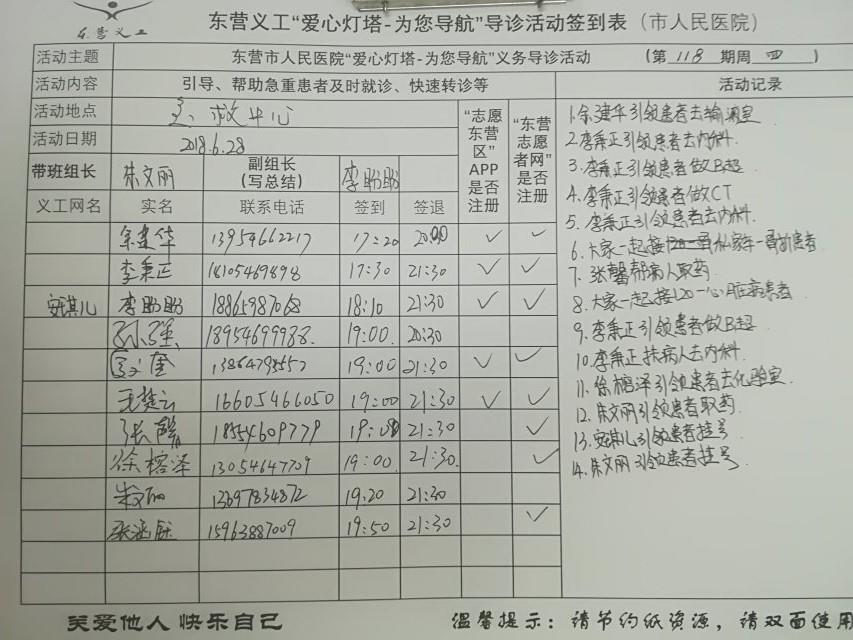 东营义工
东营义工“爱心灯塔-为您导航”导诊活动签到表（市人民医院）
活动主题 东营市人民医院“爱心灯塔-为您导航”义务导诊活动 （第118期周四）
活动内容 引导、帮助急重患者及时就诊、快速转诊等 活动记录
活动地点 急救中心
活动日期 2018.6.28
带班组长 朱文丽 副组长（写总结） 李盼盼
“志愿东营区”APP是否注册 “东营志愿者网”是否注册
义工网名 实名 联系电话 签到 签退
余建华 13954662217 17:20 20:00 ✓ ✓
李秉正 18105469898 17:30 21:30 ✓ ✓
安琪儿 李盼盼 18865987068 18:10 21:30 ✓ ✓
孙强 18954699988. 19:00. 20:30
奎 19:00 21:30 ✓ ✓
王楚云 16605466050 19:00 21:30 ✓ ✓
张馨 18554609779 19:00 21:30 ✓
徐榕泽 13054647709 19:00. 21:30. ✓
朱文丽 13697834872 19:20 21:30
张涵钰 15963887009 19:50 21:30 ✓
1.余建华引领患者去输液室
2.李秉正引领患者去内科.
3.李秉正引领患者做B超.
4.李秉正引领患者做CT
5.李秉正引领患者去内科.
6.大家一起接私家车一患者
7.张馨帮病人取药.
8.大家一起接120一心脏病患者
9.李秉正引领患者做B超.
10.李秉正扶病人去内科.
11.徐榕泽引领患者去化验室.
12.朱文丽引领患者取药.
13.安琪儿引领患者挂号
14.朱文丽引领患者挂号.
关爱他人 快乐自己 温馨提示：请节约纸资源，请双面使用